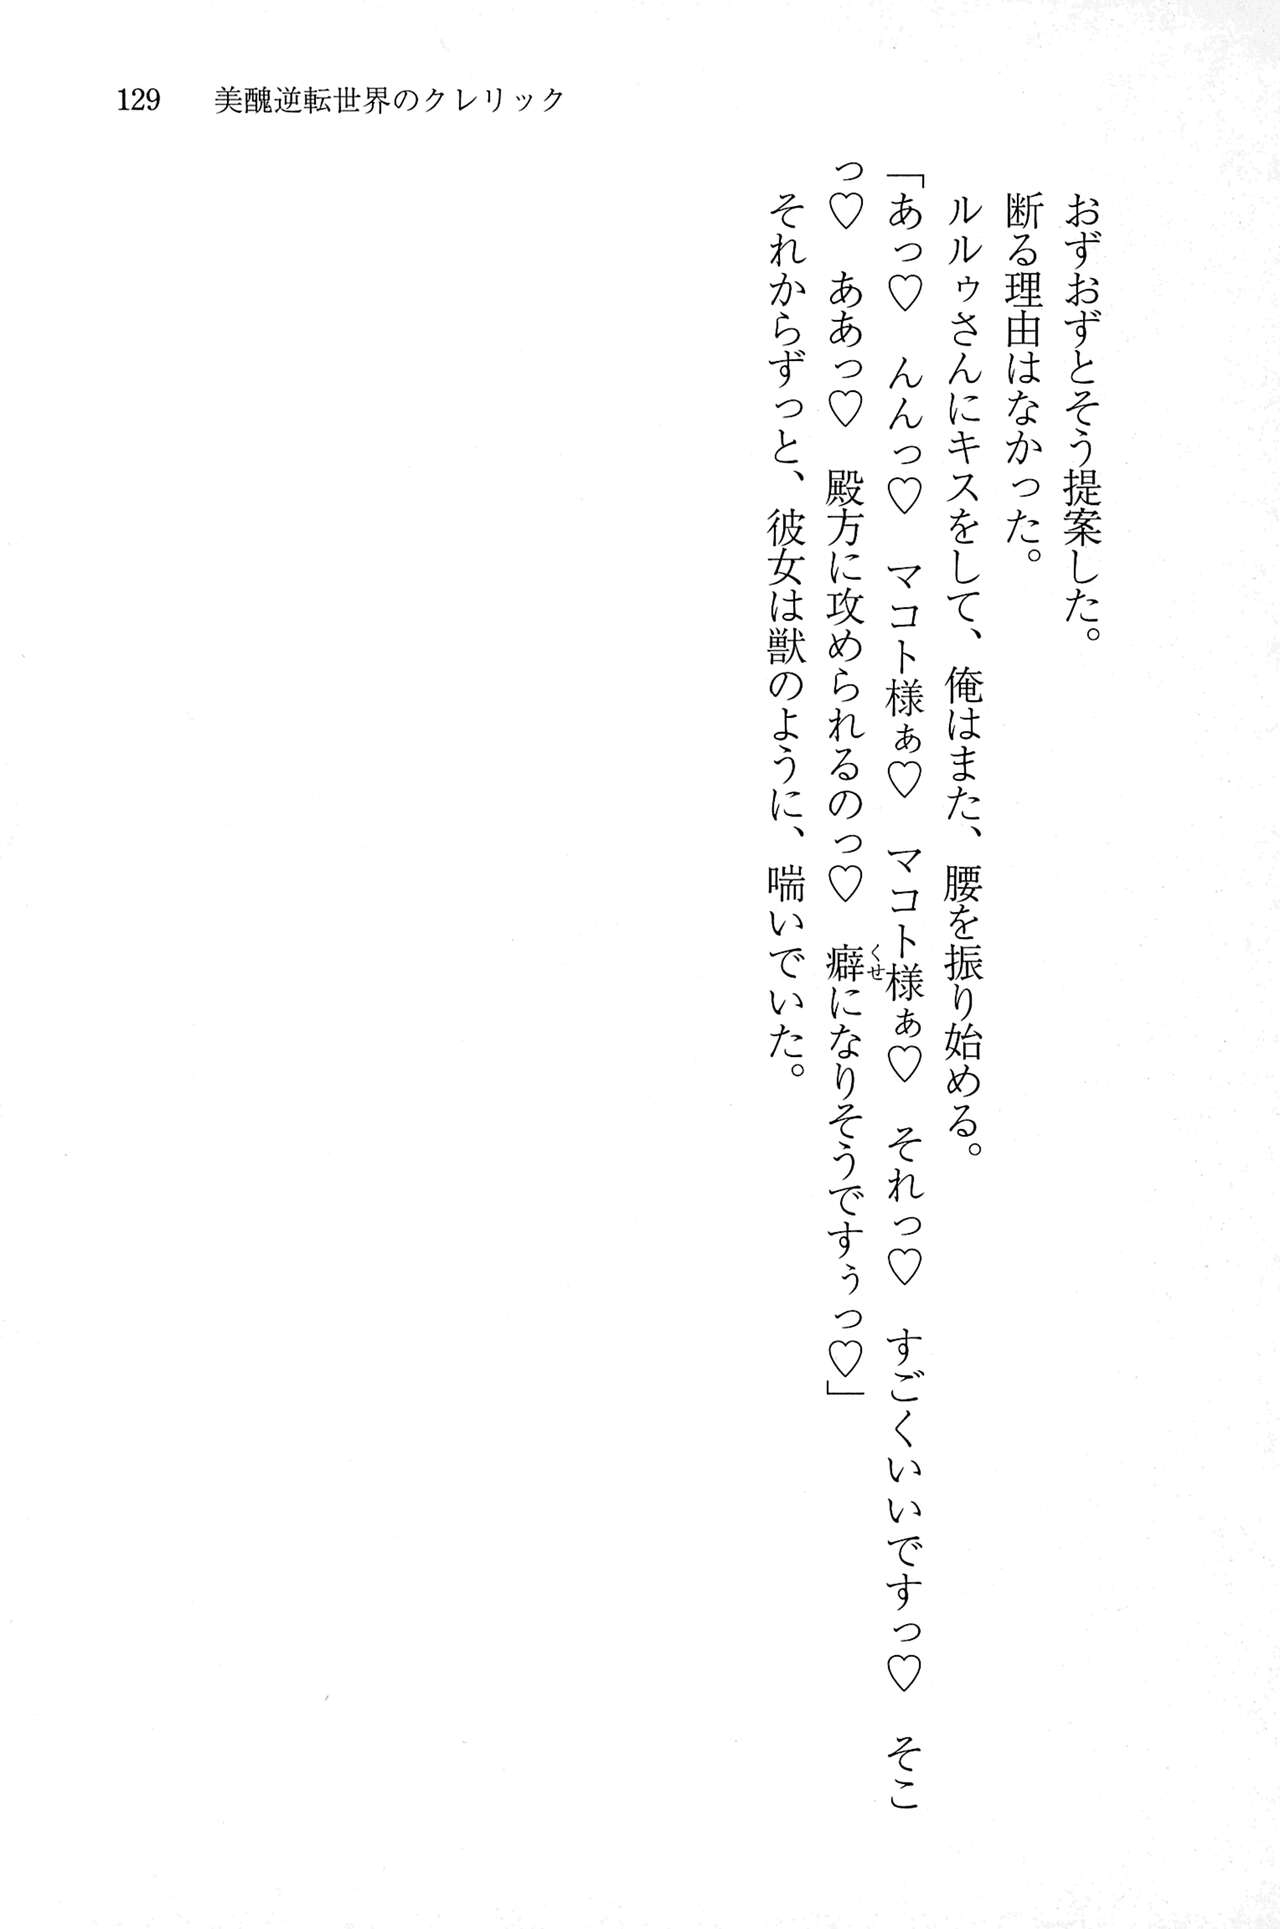 129　美醜逆転世界のクレリック
おずおずとそう提案した。
断る理由はなかった。
ルルゥさんにキスをして、俺はまた、腰を振り始める。
「あっ♡　んんっ♡　マコト様ぁ♡　マコト様ぁ♡　それっ♡　すごくいいですっ♡　そこ
っ♡　ああっ♡　殿方に攻められるのっ♡　癖になりそうですぅっ♡」
くせ
それからずっと、彼女は獣のように、喘いでいた。